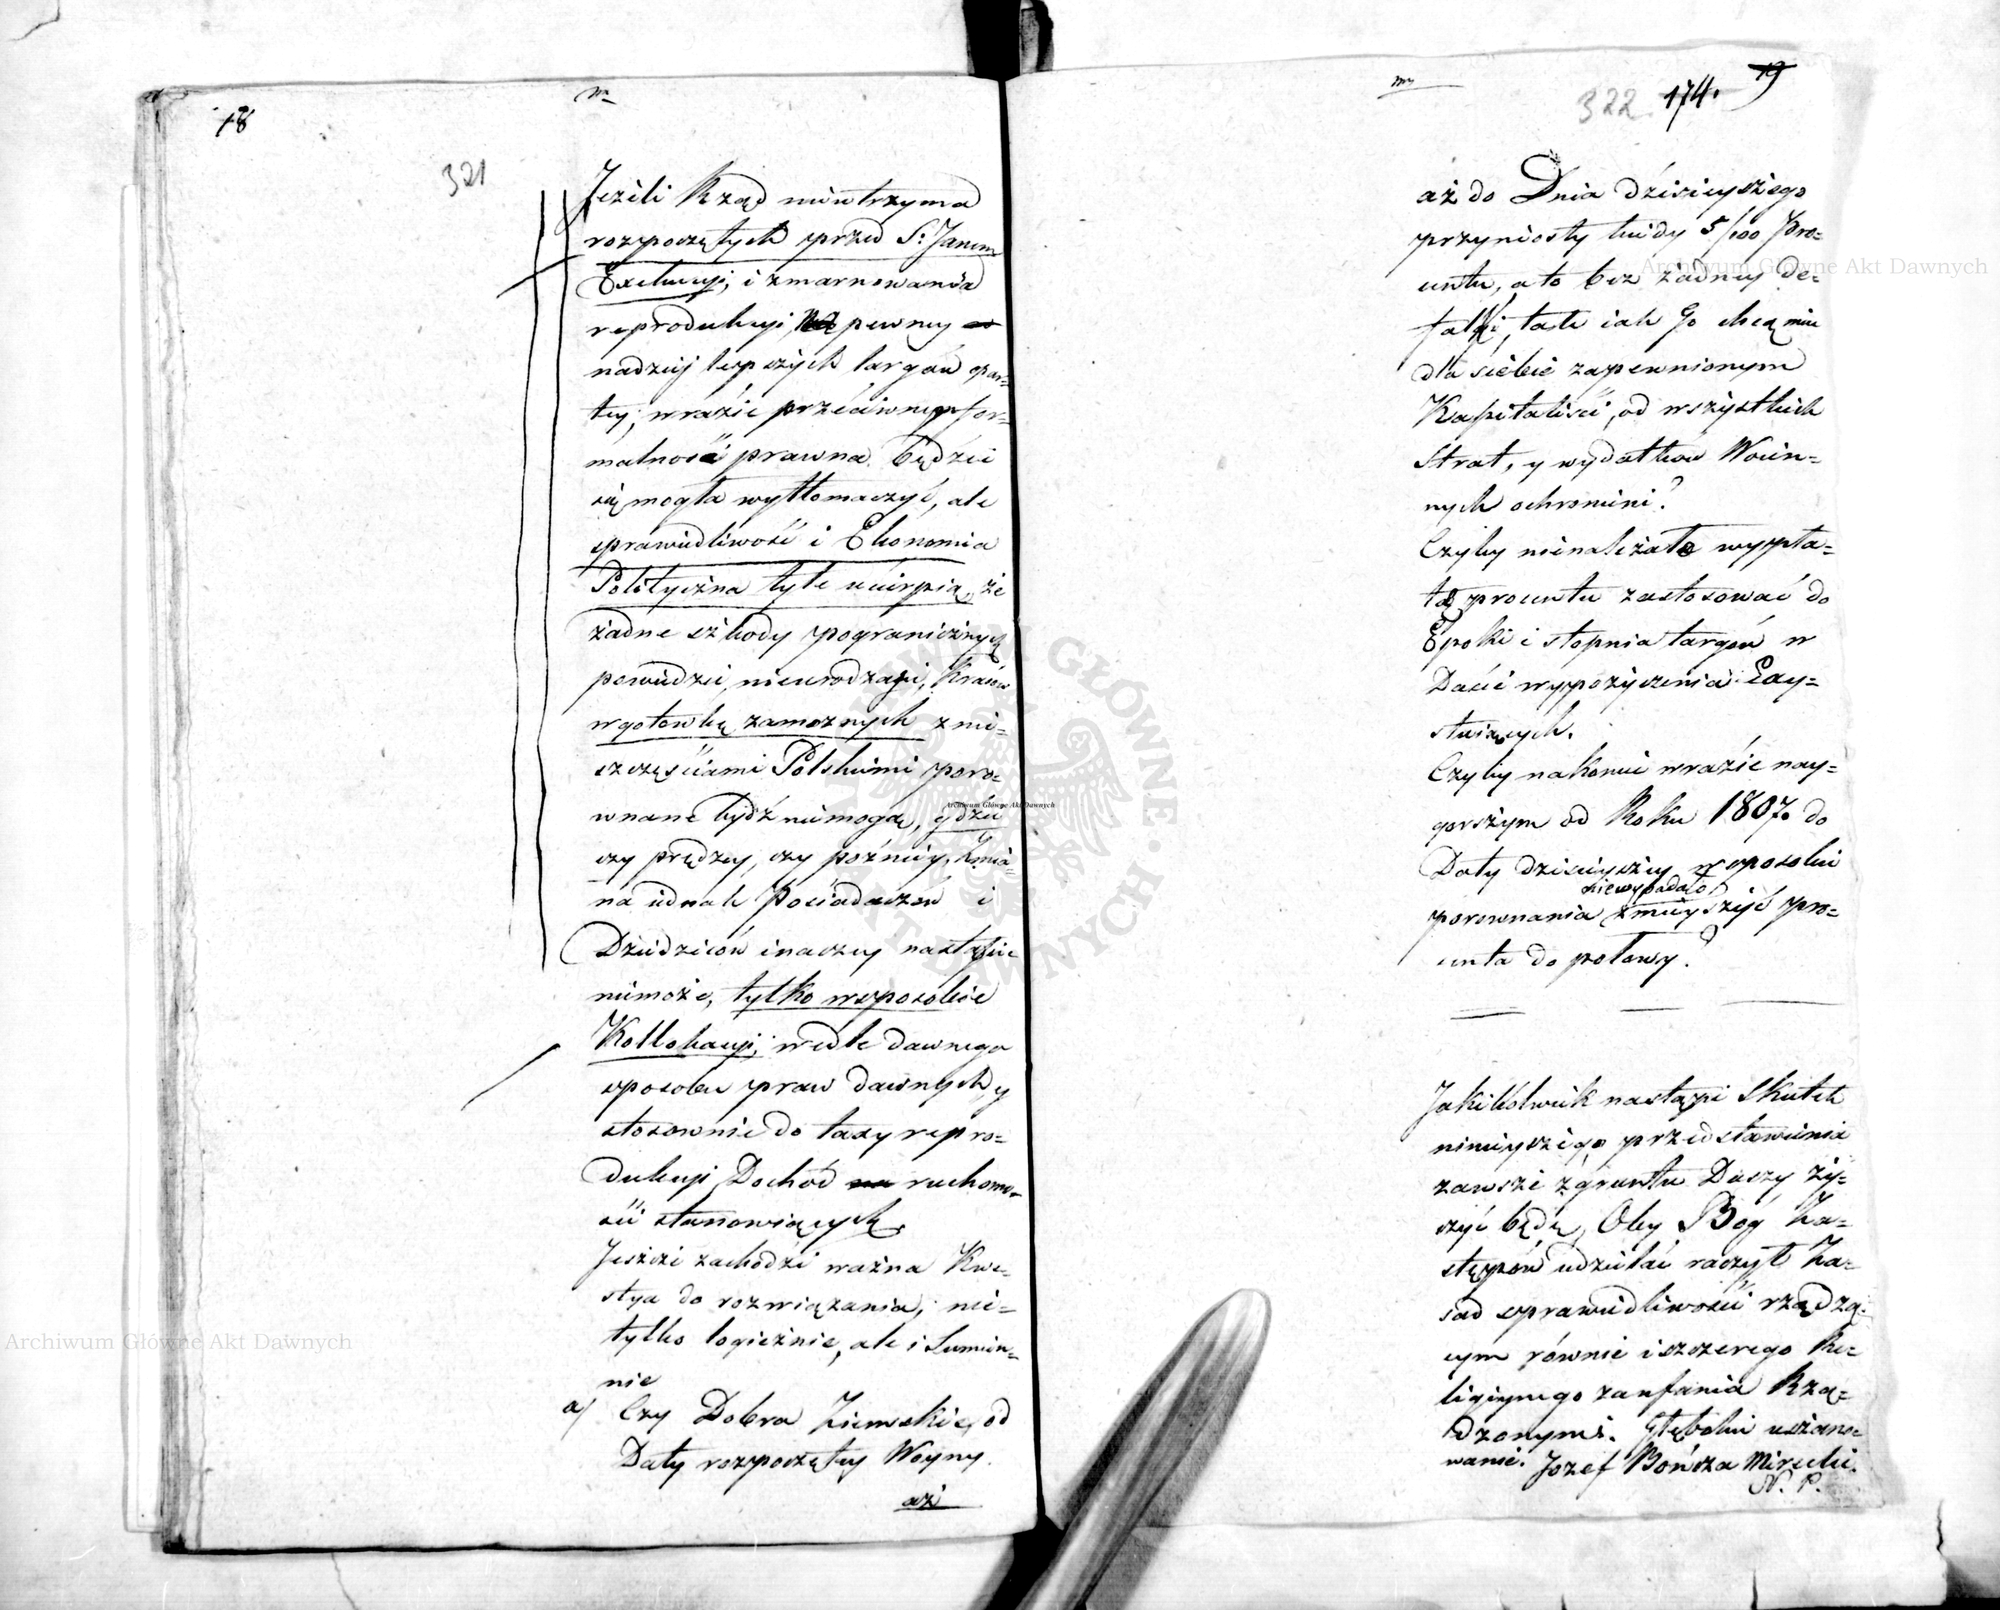 18
321
Jeżeli Rząd nieutrzyma
rozpoczętych przed S: Janem
Exekucyi, i zmarnowania
reprodukcyi, na pewney
nadziei lepszych targów opar-
tey; w razie przeciwnym for-
malność prawna będzie
się mogła wytłomaczyć, ale
sprawiedliwość i Ekonomia
Polityczna tyle ucierpią, że
żadne szkody pograniczných
powiedzi, nieurodzaji, Kraiów
w gotowkę zamoznych z nie-
szczęściami Polskiemi poro-
wnane bydź niemogą, gdzie
czy prędzey, czy poźniey, Zmia-
na iednak Posiadaczów i
Dziedziców inaczey nastąpić
niemoże, tylko w sposobie
Kollokacyi, wedle dawnego
sposobu praw dawnych, y
stosownie do taxy repro-
dukcyi Dochód ruchomo-
ści stanowiących.
Jeszcze zachodzi ważna Kwe-
stya do rozwiązania, nie-
tylko logicznie, ale i Sumien-
nie
a) Czy Dobra Ziemskie, od
Daty rozpoczętey Woyny
aż
322 174. 19
aż do Dnia dzisieyszego
przyniosły kiedy 5/100 Pro-
centu, a to bez żadney de-
falki, tak iak Go chcą mieć
dla siebie zapewnionym
Kapitaliści, od wszystkich
Strat, y wydatków Woien-
nych ochronieni?
Czyby nienależało wypła-
tę procentu zastosować do
Epoki i stopnia targów w
Dacie wypożyczenia Exy-
stuiących.
Czyby nakoniec w razie nay-
gorszym od Roku 1807. do
Daty dzisieyszey w sposobie
niewypadało
porownania zmnieyszyć pro-
centa do połowy?
Jakikolwiek nastąpi Skutek
ninieyszego przedstawienia
zawsze z gruntu Duszy ży-
czyć będę, Oby Bóg Za-
stępów udzielać raczył Za-
sad sprawiedliwości rządzą-
cym równie i szczerego Re-
ligiynego zaufania Rzą-
dzonymi. Głębokie uszano-
wanie. Jozef Bończa Mirecki.
N. P.
Archiwum Główne Akt Dawnych
Archiwum Główne Akt Dawnych
Archiwum Główne Akt Dawnych
ARCHIWUM GŁÓWNE AKT DAWNYCH